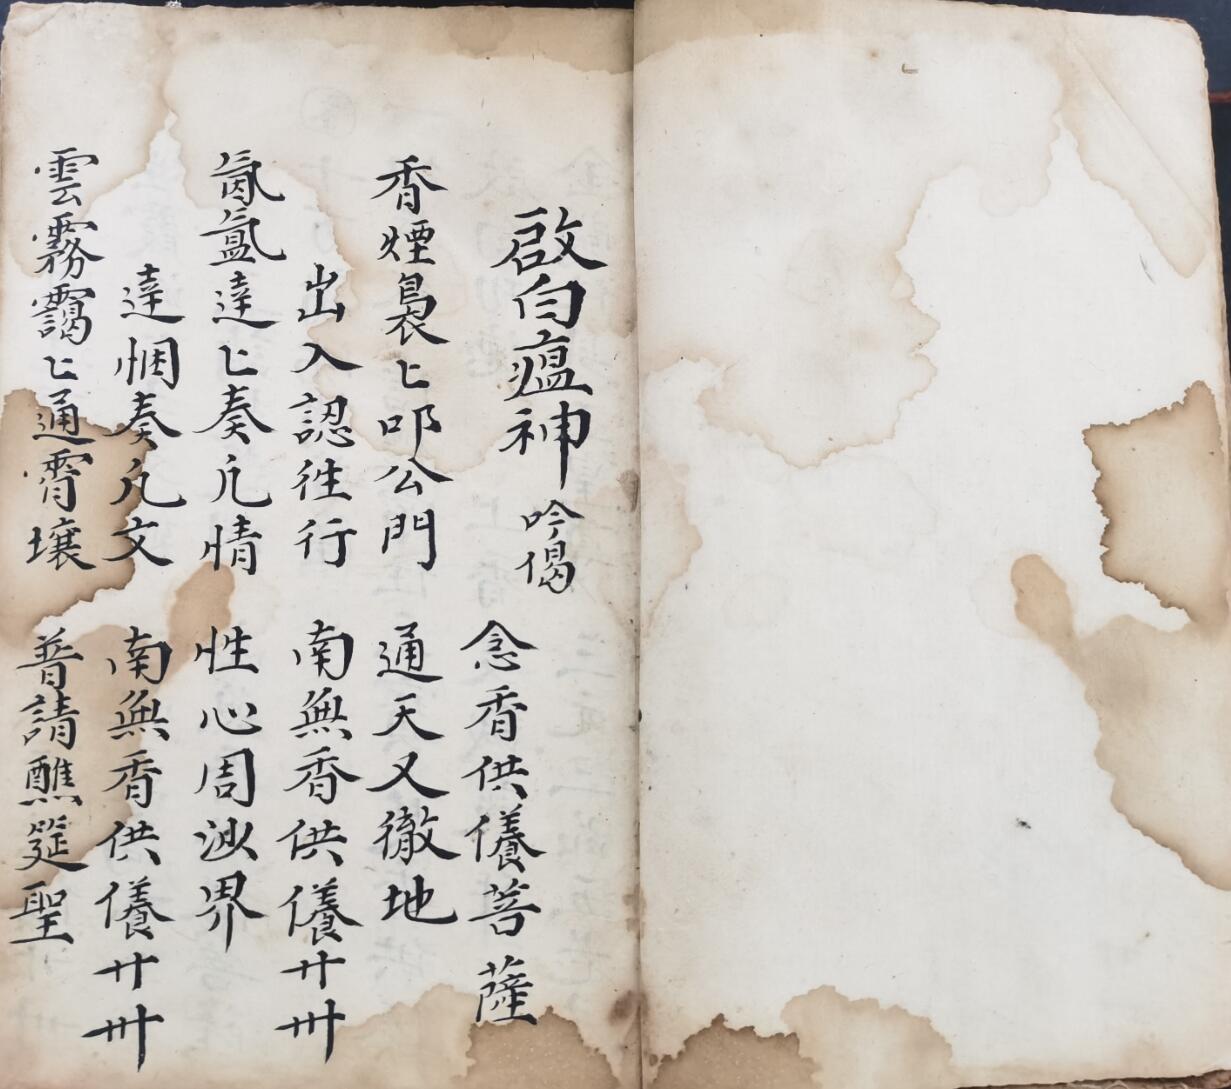 啟白瘟神 吟偈
念香供儀菩薩
香煙裊〻叩公門 通天又徹地
出入認徃行 南無香供儀廾卅
氤氳達〻奏凢情 性心周沙界
達悃奏凢文 南無香供儀廾卅
雲霧靄〻通霄壤 普請醮筵聖